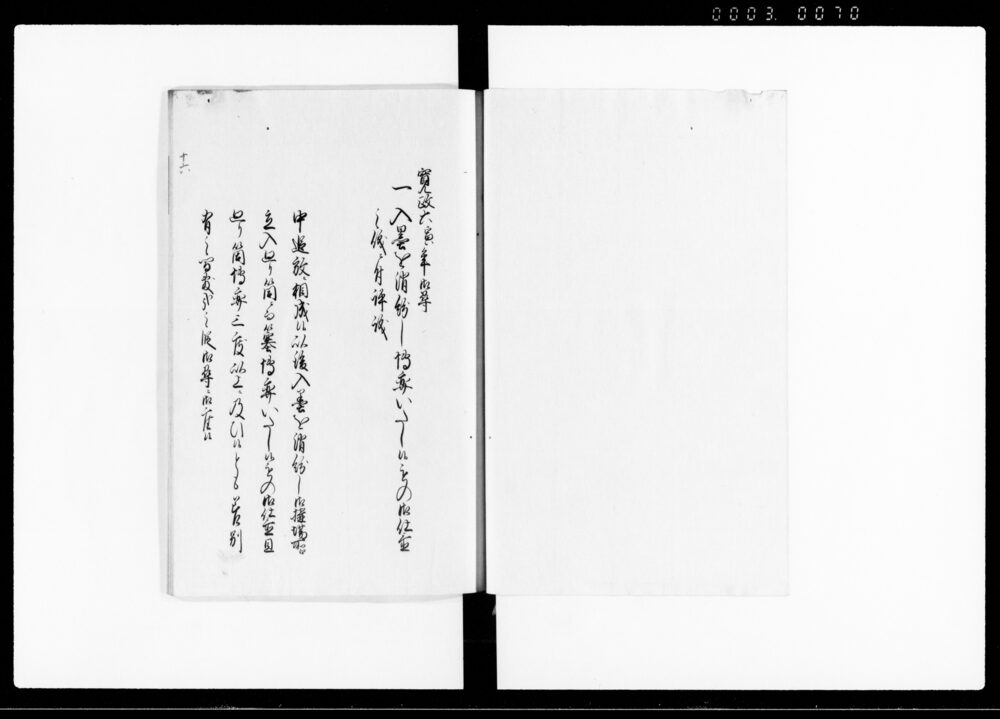 0003. 0070
寛政六寅年御尋
一入墨を消紛し博奕いたし候もの御仕置
之儀ニ付評議
中追放ニ相成候以後入墨を消紛し御構場所
立入四ケ箇ニ而篝博奕いたし候もの御仕置且
四ケ箇博奕三度以上ニ及ひ候とも差別
有之
之段御尋ニ御座候
十六